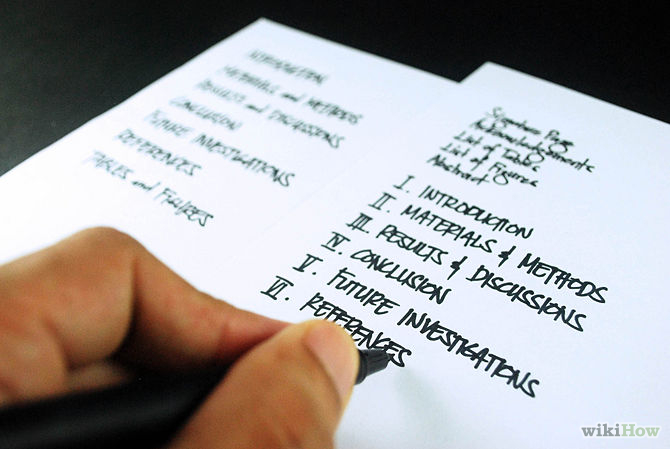 INTRODUCTION
MATERIALS and METHODS
RESULTS and DISCUSSIONS
CONCLUSION
FUTURE INVESTIGATIONS
REFERENCES
TABLES and FIGURES
Signature Page
Acknowledgements
List of Tables
List of Figures
Abstract
I. INTRODUCTION
II. MATERIALS & METHODS
III. RESULTS & DISCUSSIONS
IV. CONCLUSION
V. FUTURE INVESTIGATIONS
VI. REFERENCES
wikiHow